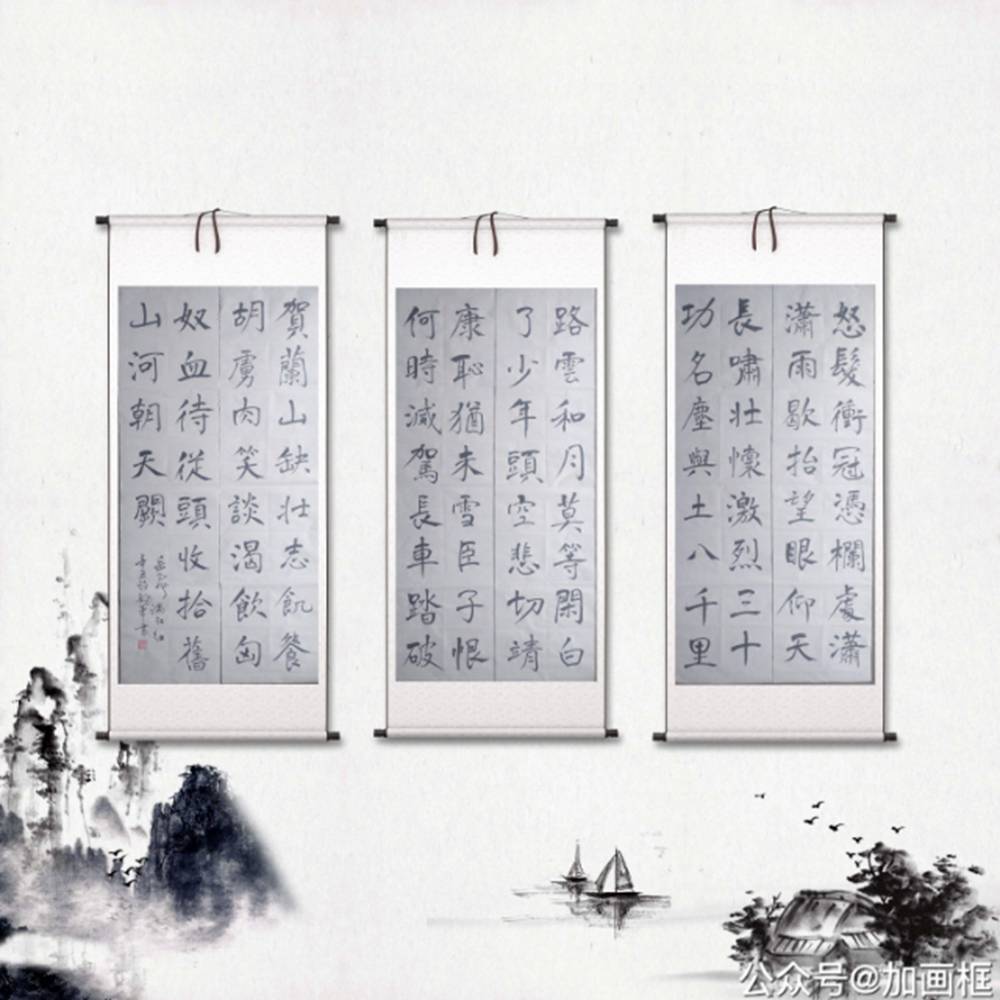 怒髮衝冠憑欄處瀟
瀟雨歇抬望眼仰天
長嘯壯懷激烈三十
功名塵與土八千里
路雲和月莫等閑白
了少年頭空悲切靖
康恥猶未雪臣子恨
何時滅駕長車踏破
賀蘭山缺壯志飢餐
胡虜肉笑談渴飲匈
奴血待從頭收拾舊
山河朝天闕
公众号@加画框